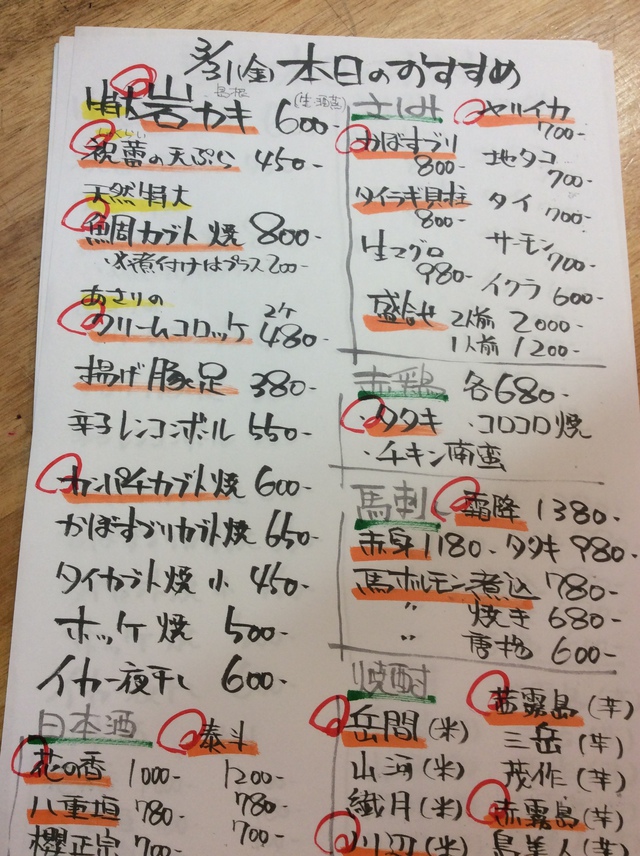 3/31(金)本日のおすすめ
島根
特大岩カキ 600-
(生・酒蒸)
祝蕾の天ぷら 450-
天然特大
鯛カブト焼 800-
※煮付けはプラス200-
あさりの
クリームコロッケ 2ケ 480-
揚げ豚足 380-
辛子レンコンボール 550-
カンパチカブト焼 600-
かぼすブリカブト焼 650-
タイカブト焼 小 450-
ホッケ焼 500-
イカ一夜干し 600-
日本酒
泰斗 1200-
花の香 1000-
八重垣 780-
780-
櫻正宗 700-
700-
さしみ
ヤリイカ 700-
かぼすブリ 800-
地タコ 700-
タイラギ貝柱 800-
タイ 700-
生マグロ 980-
サーモン 700-
イクラ 600-
盛合せ 2人前 2000-
1人前 1200-
赤鶏 各680-
・タタキ ・コロコロ焼
・チキン南蛮
馬刺し 霜降 1380-
赤身 1180- タタキ 980-
馬ホルモン煮込 780-
〃 焼き 680-
〃 600-
焼酎
茜霧島(芋)
岳間(米)
三岳(芋)
山河(米)
茂作(芋)
繊月(米)
赤霧島(芋)
川辺(米)
島美人(芋)